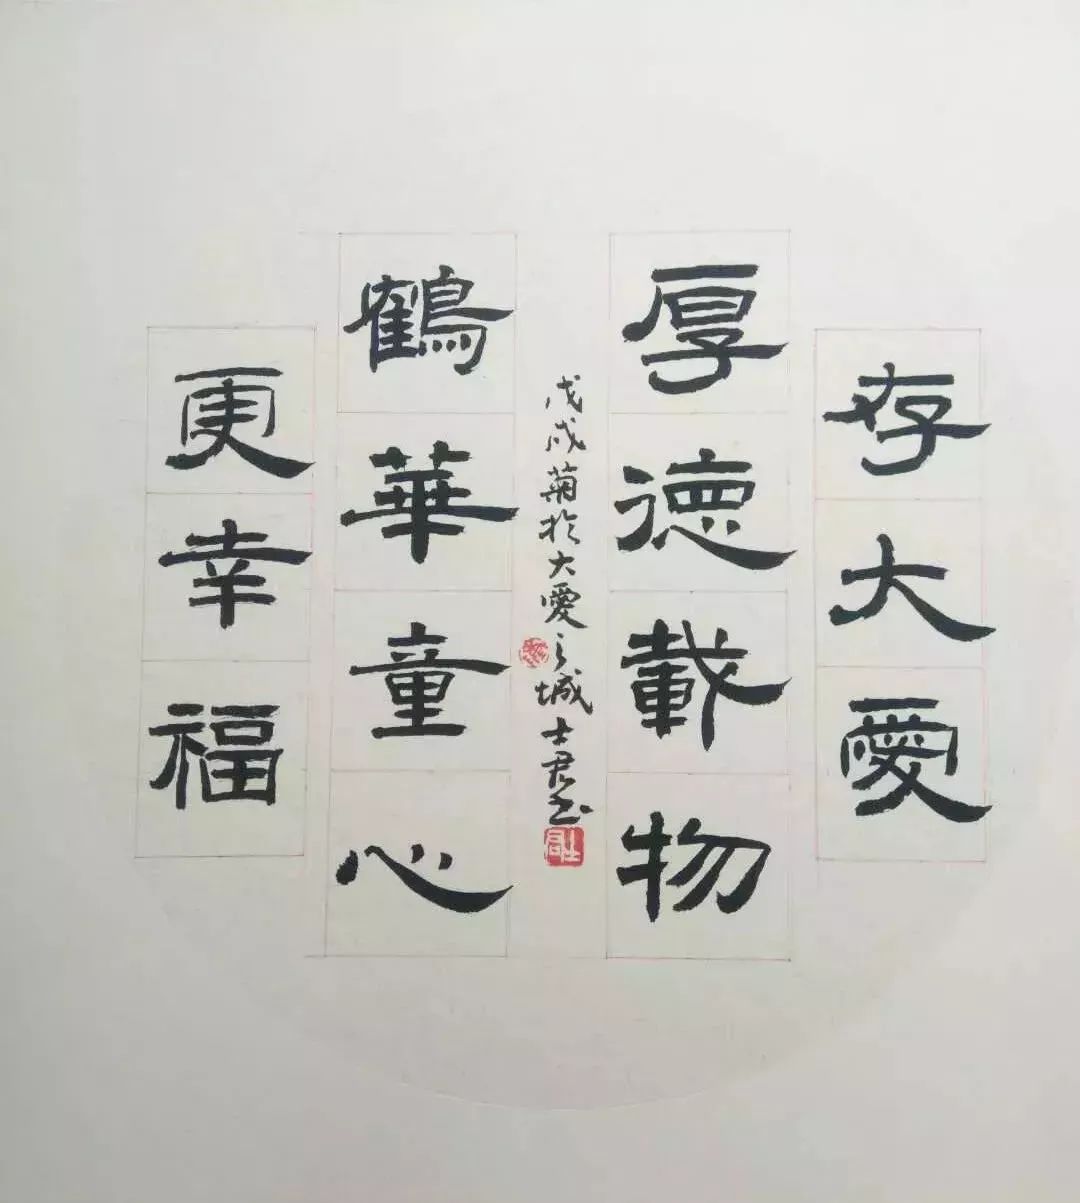 存大愛
厚德載物
戊戌菊於大愛之城士君书
士君
鶴華童心
更幸福